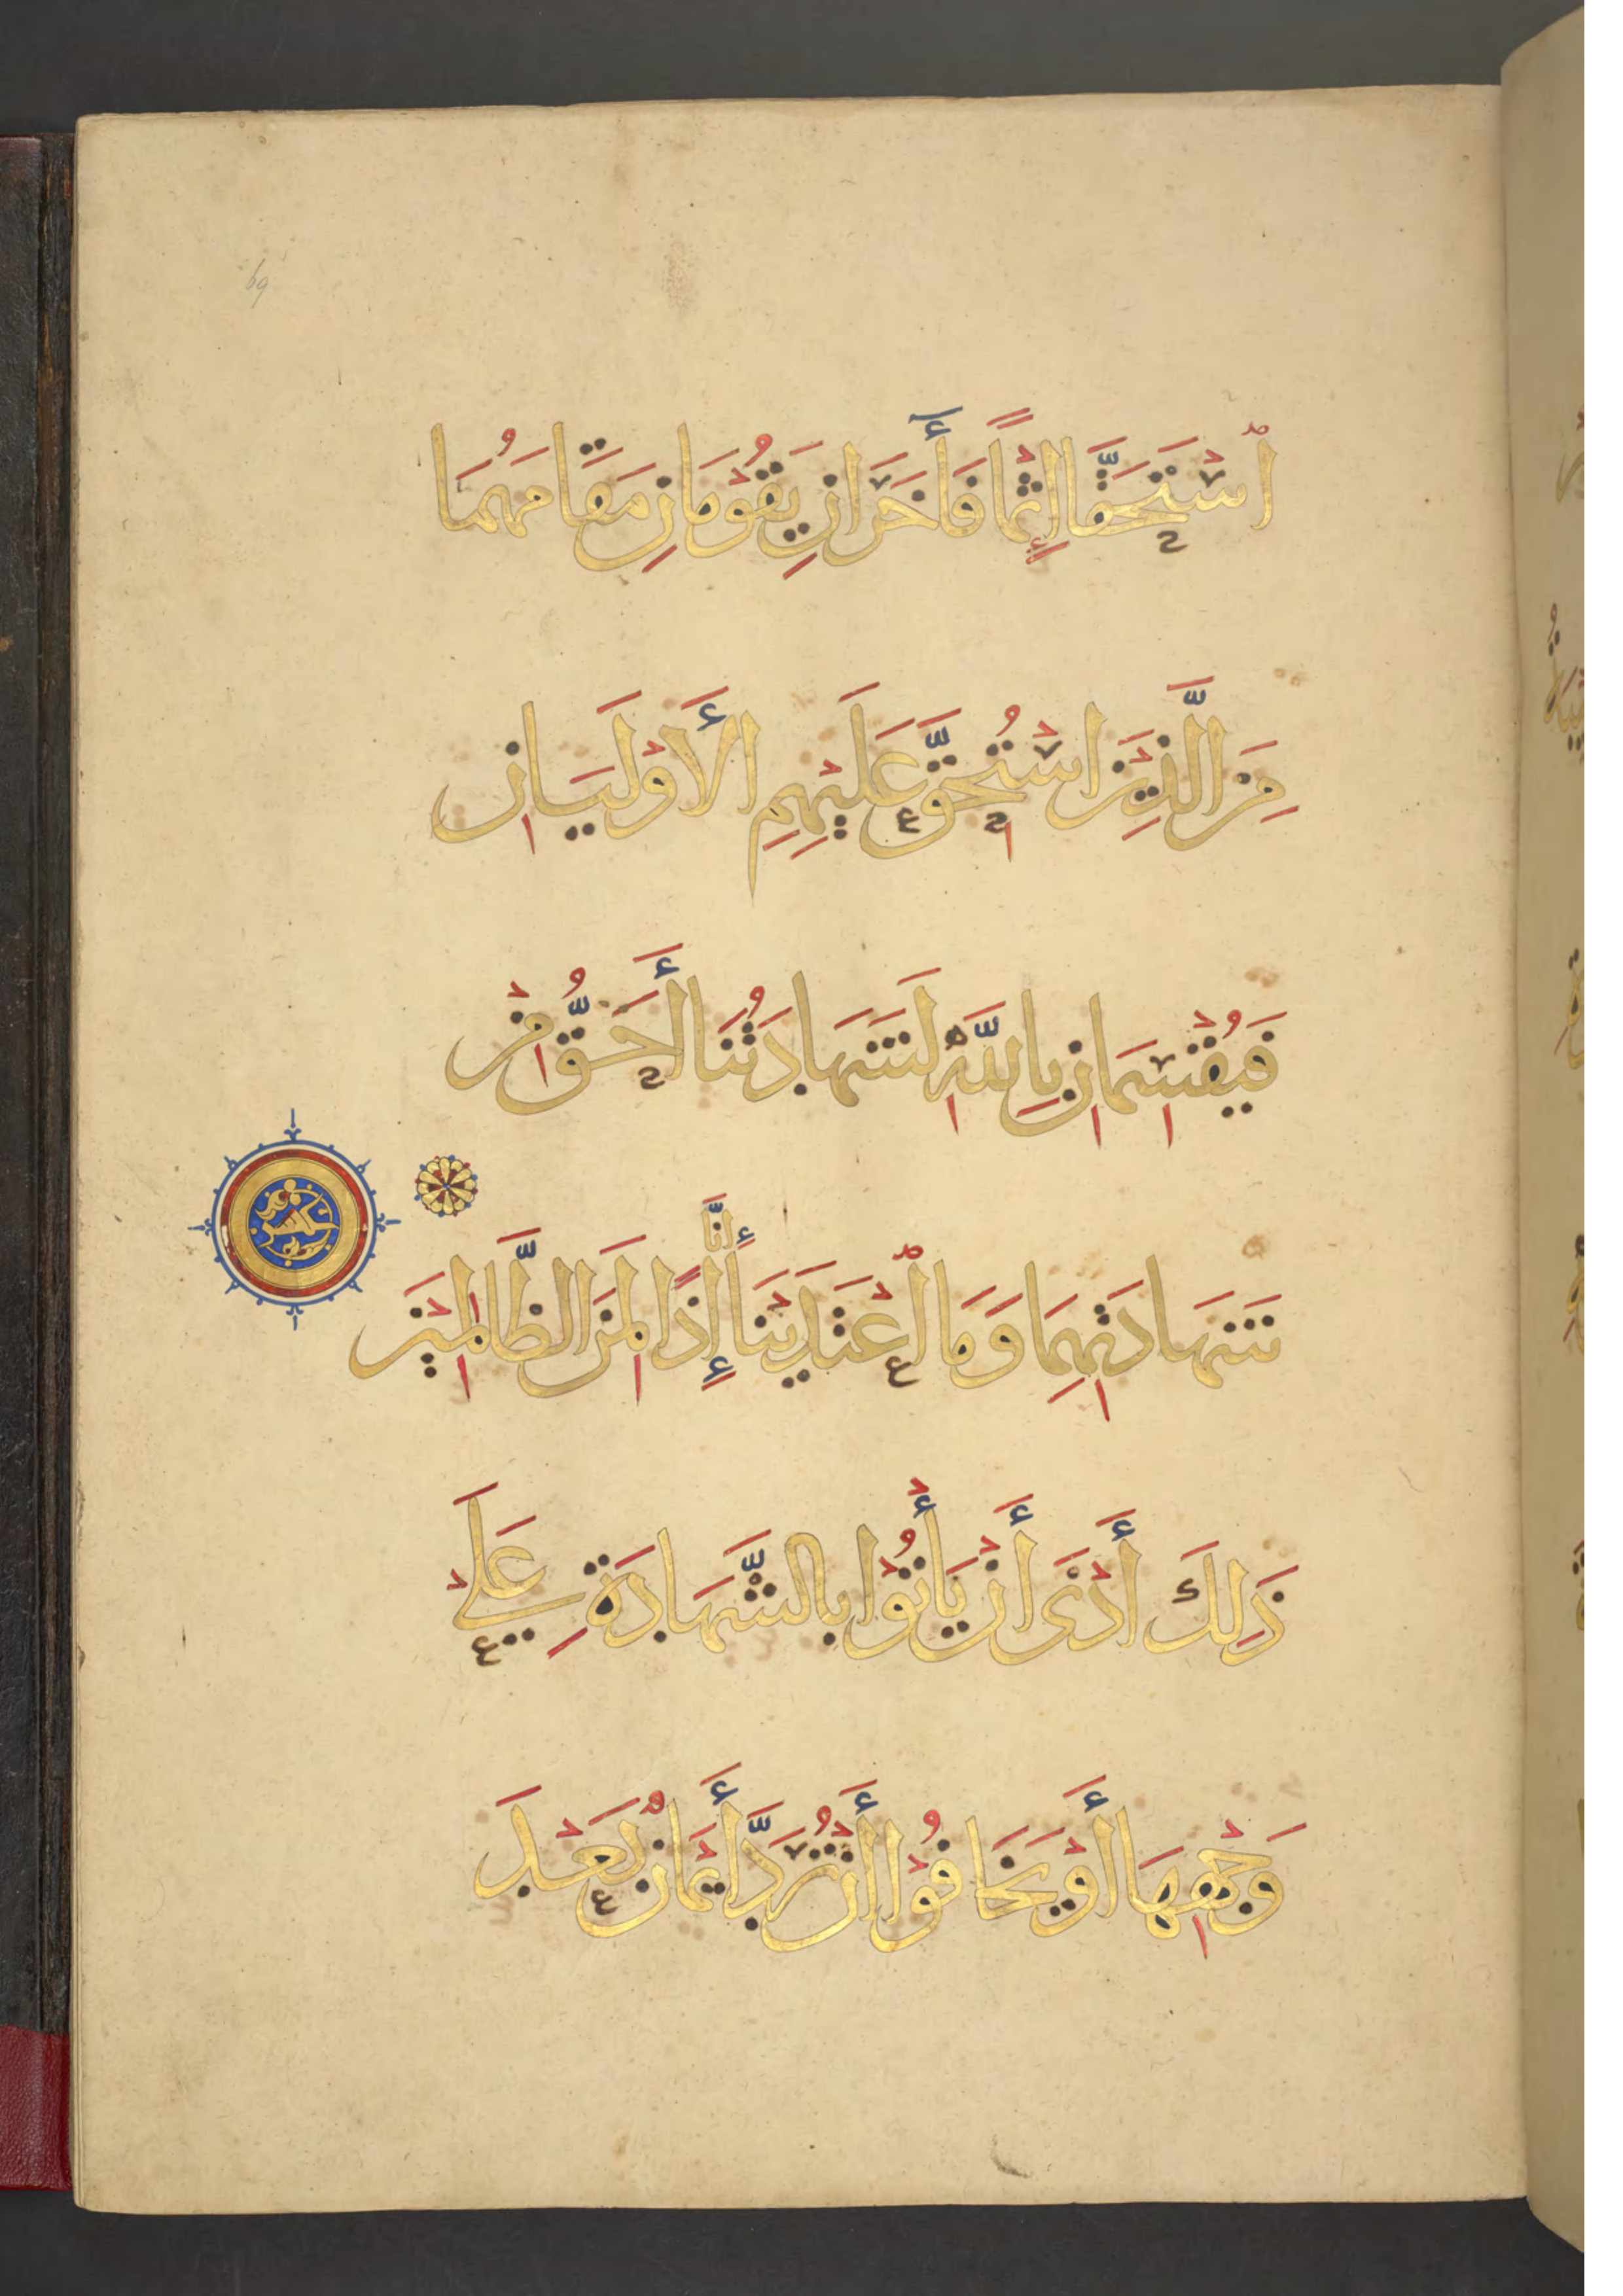 ٱسْتَحَقَّا إِثْمًا فَأَخَرَانِ يَقُوْمَانِ مَقَامَهُمَا
مِنَ الَّذِيْنَ اسْتُحِقَّ عَلَيْهِمِ الأَوْلَيَانِ
فَيُقْسِمَانِ بِاللَّهِ لَشَهَادَتُنَا أَحَقُّ مِنْ
شَهَادَتِهِمَا وَمَا ٱعْتَدَيْنَا إِنَّا إِذًا لَمِنَ الظَّالِمِيْنَ
ذَلِكَ أَدْنَى أَنْ يَأْتُوْا بِالشَّهَادَةِ عَلَى
وَجْهِهَا أَوْ يَخَافُوْا أَنْ تُرَدَّ أَيْمَانٌ بَعْدَ
69